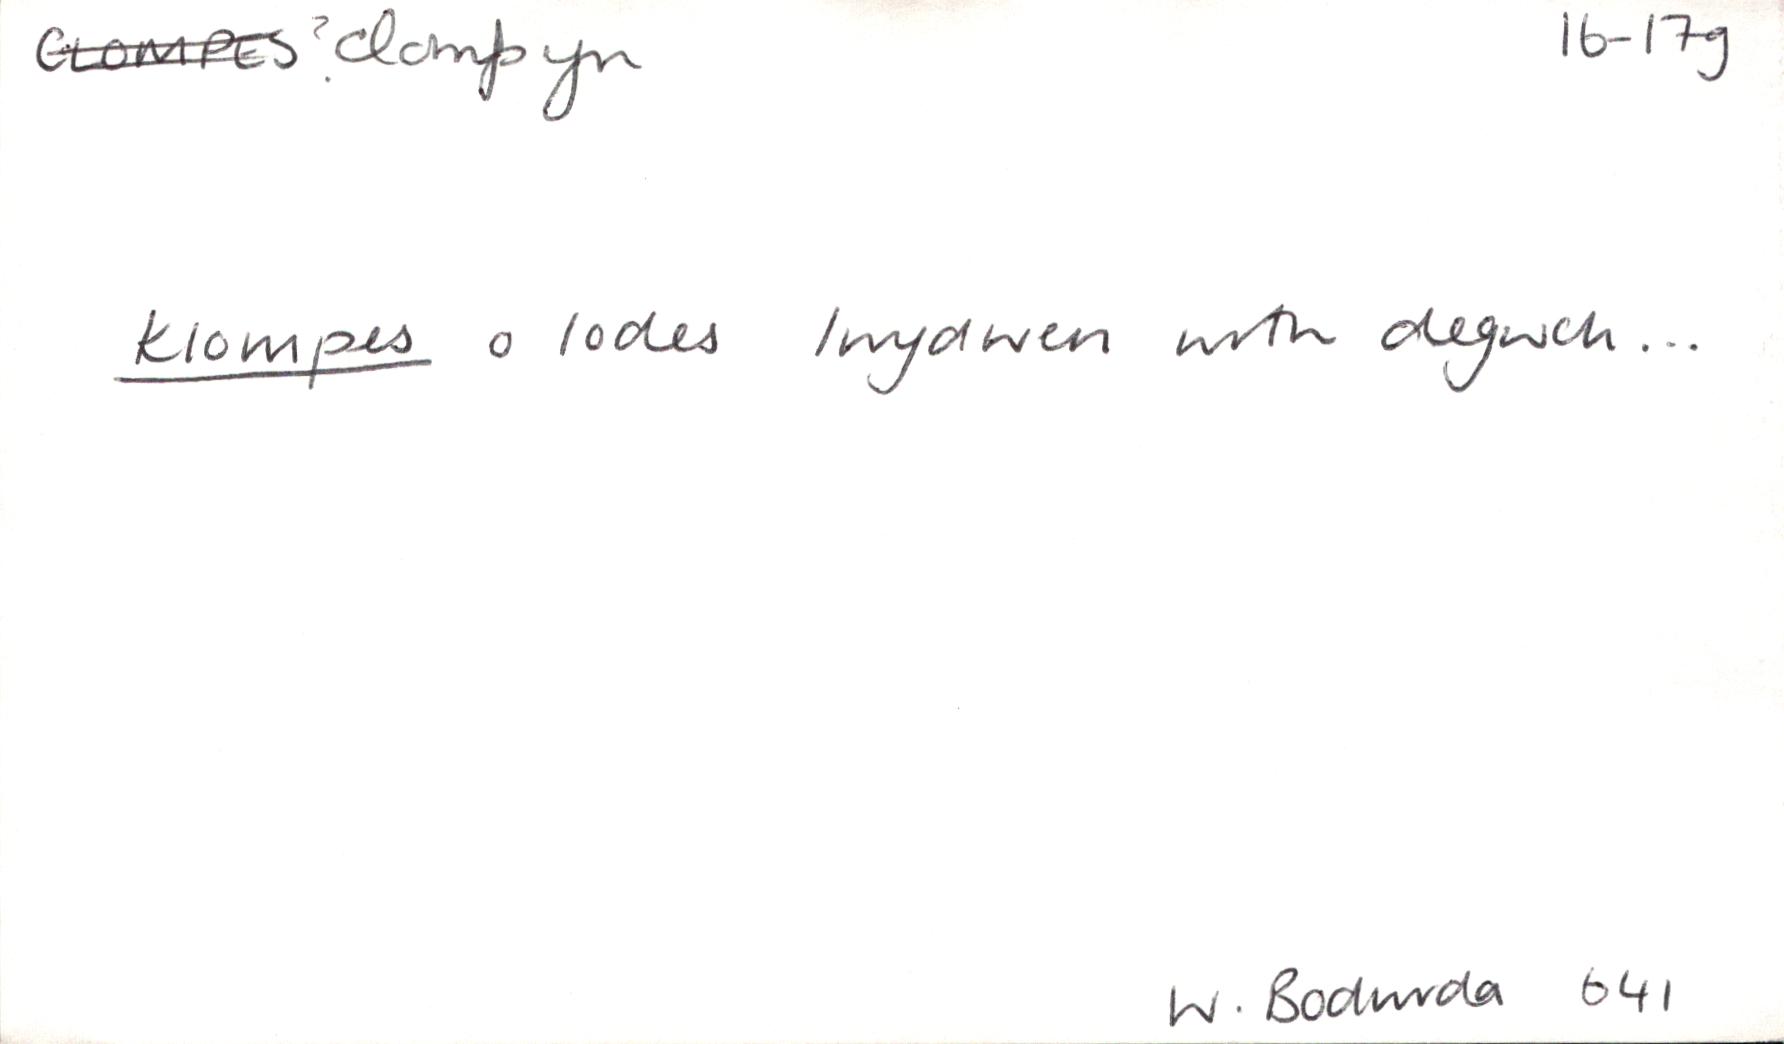 CLOMPES ? clampyn 16-17g
klompes o lodes lwydwen wrth degwch...
W. Bodwrda 641